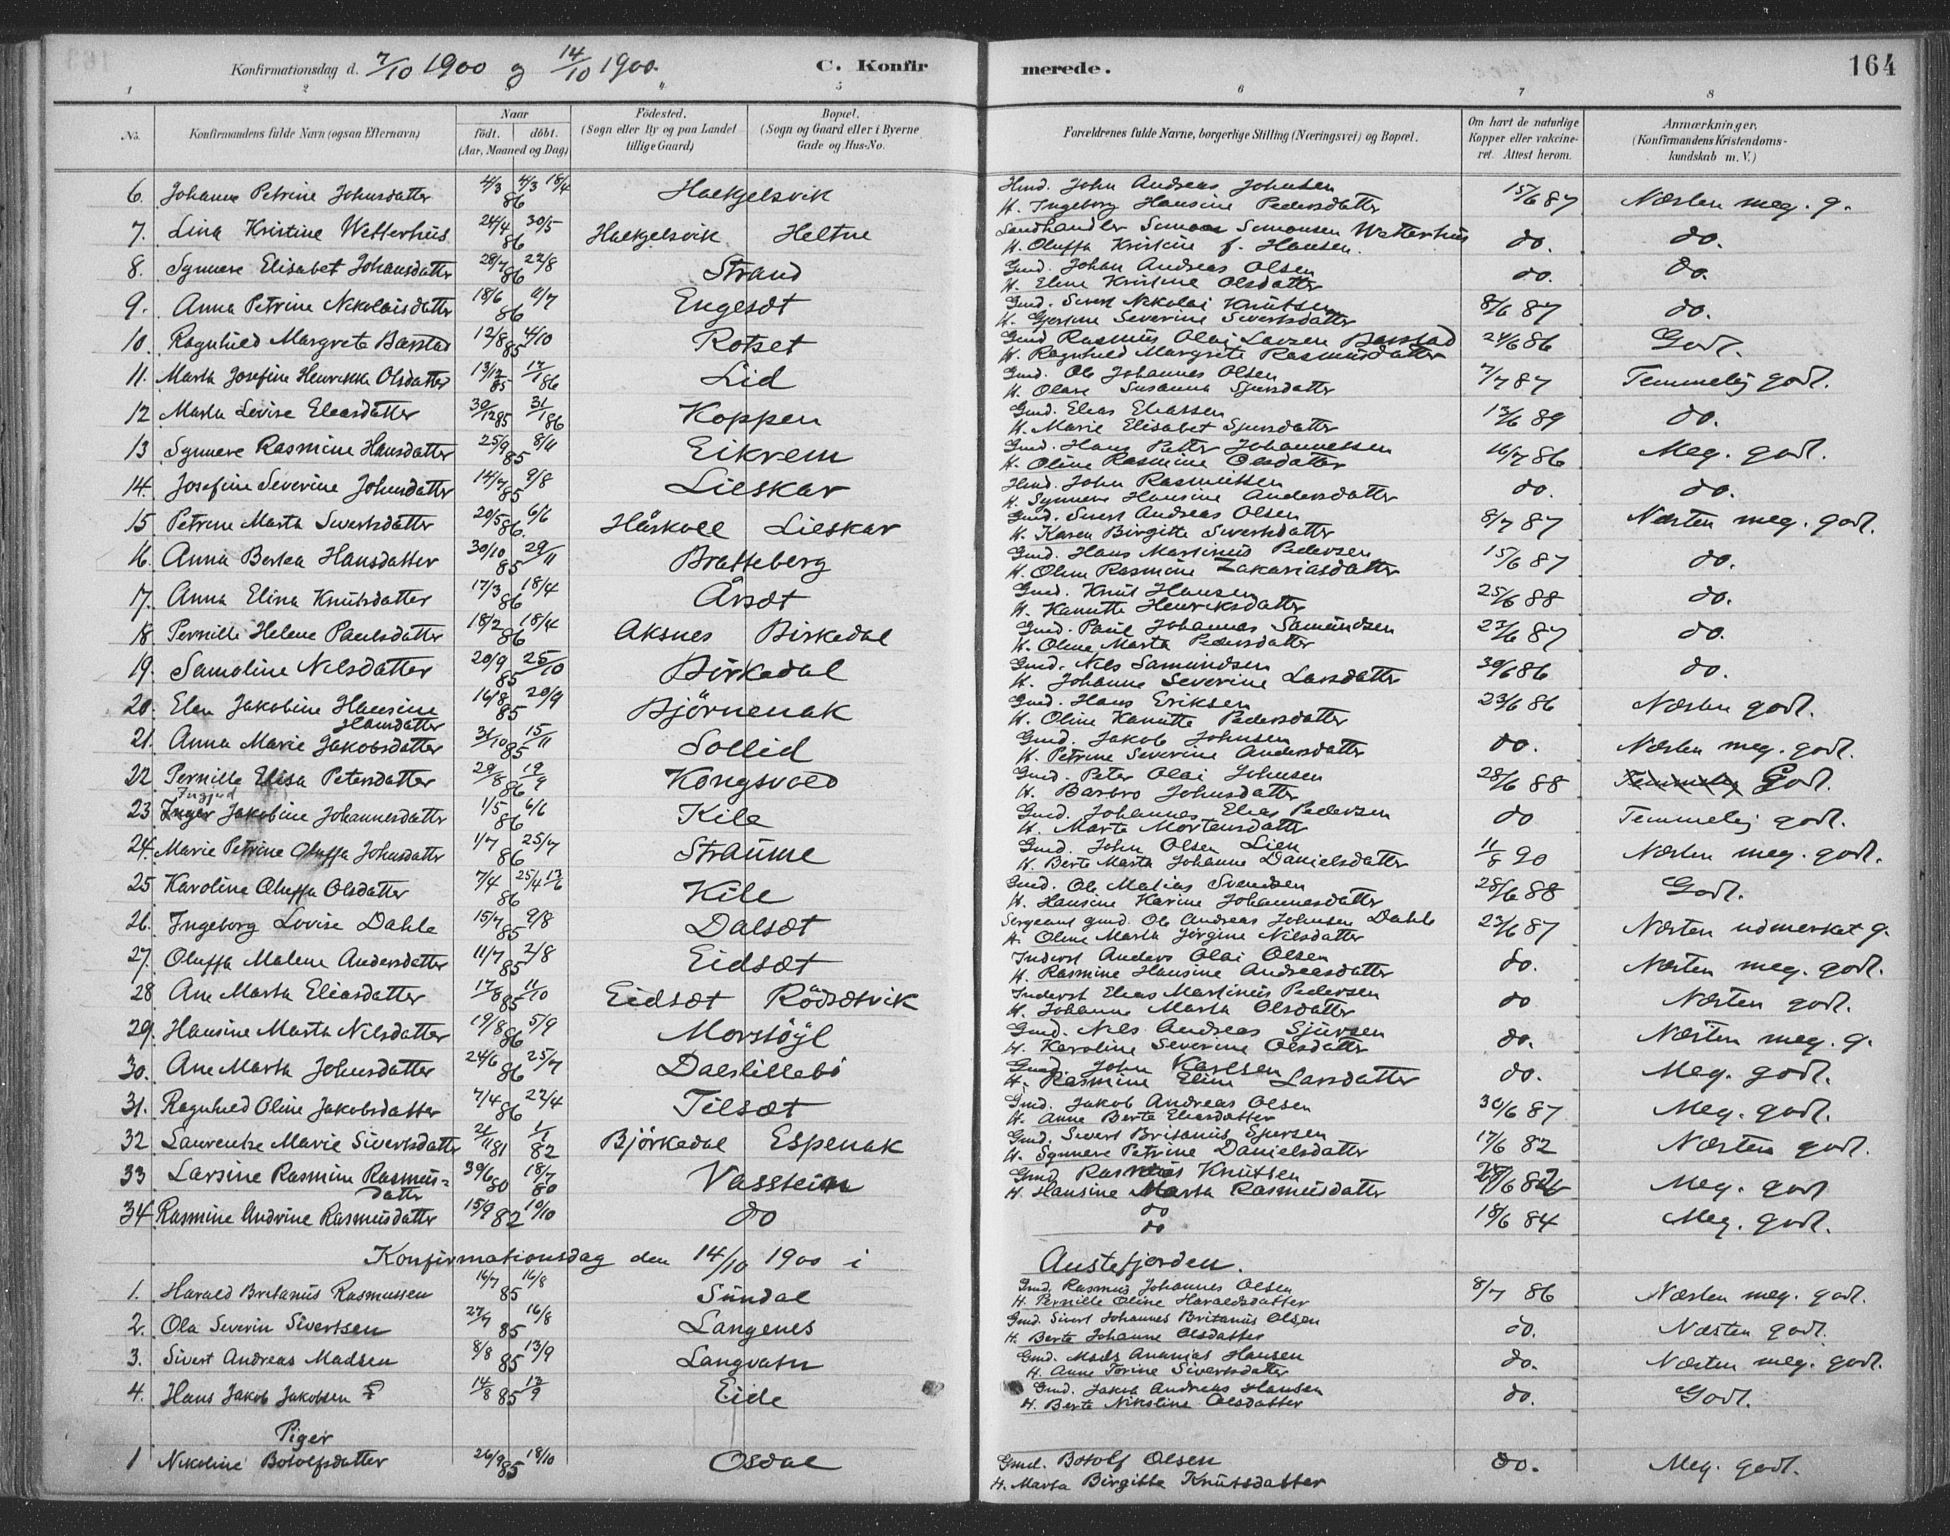 Konfirmationsdag d. 7/10 1900 og 14/10 1900. C. Konfirmerede. 164
1 2 3 4 5 6 7 8
No. Konfirmandens fulde Navn (ogsaa Efternavn) Naar født. døbt. (Aar, Maaned og Dag) Fødested. (Sogn eller By og paa Landet tillige Gaard) Bopæl. (Sogn og Gaard eller i Byerne Gade og Hus-No. Forældrenes fulde Navne, borgerlige Stilling (Næringsvei) og Bopæl. Om havt de naturlige Kopper eller vakcineret. Attest herom. Anmærkninger. (Konfirmandens Kristendomskundskab m. V.)
6. Johanne Petrine Johnsdatter 4/3 86 4/3 18/4 Haekjelsvik Hmd. John Andreas Johnsen 15/6 87 Næsten meg. g.
H. Ingeborg Hansine Pedersdatter
7. Lina Kristine Wetterhus 24/4 86 30/5 Haekjelsvik Heltne Landhandler Simon Simonsen Wetterhus do. do.
H. Oluffa Kristine f. Hansen.
8. Synnere Elisabet Johansdatter 28/7 86 22/8 Strand Gmd. Johan Andreas Olsen do. do.
H. Eline Kristine Olsdatter
9. Anna Petrine Nikolaisdatter 18/6 86 4/7 Engesæt Gmd. Sivert Nikolai Knutsen 8/6 87 do.
H. Gjertine Severine Sivertsdatter
10. Ragnhild Margrete Barstad 12/8 85 4/10 Rotset Gmd Rasmus Olai Larsen Barstad 24/6 86 Godt.
H. Ragnhild Margrete Rasmusdatter
11. Marta Josefine Henrikke Olsdatter 13/12 85 17/1 86 Lid Gmd. Ole Johannes Olsen 7/7 87 Temmelig godt.
H. Olave Susanna Sjursdatter
12 Marta Lovise Eleasdatter 30/12 85 31/1 86 Koppen Gmd. Elias Eliassen 13/6 89 do.
H. Marie Elisabet Sjursdatter
13 Synnere Rasmine Hansdatter 25/9 85 8/11 Eikrem Gmd. Hans Petter Johannessen 16/7 86 Meg. godt.
H. Oline Rasmine Olsdatter
14. Josefine Severine Johnsdatter 14/7 85 9/8 Lieskar Hmd. John Rasmussen do. do.
H. Synnere Hansine Andersdatter
15 Petrine Marta Sivertsdatter 20/5 86. 6/6 Håskoll Lieskar Gmd. Sivert Andreas Olsen 8/7 87 Næsten meg. godt.
H. Karen Birgitte Sivertsdatter
16 Anna Bertea Hansdatter 30/10 85 29/11 Bratteberg Gmd. Hans Martinus Pedersen 15/6 87 do.
H. Oline Rasmine Zakariasdatter
17. Anna Elina Knutsdatter 17/3 86 18/4 Årsæt Gmd. Knut Hansen 25/6 88 do.
H. Kanutte Henriksdatter
18 Pernille Helene Paulsdatter 18/2 86 18/4 Aksnes Birkedal Gmd. Paul Johannes Samundsen 23/6 87 do.
H. Oline Marta Pedersdatter
19. Samoline Nilsdatter 20/9 85 25/10 Birkedal Gmd. Nils Samundsen 30/6 86 do.
H. Johanne Severine Larsdatter
20. Elen Jakobine Hansine Hansdatter 16/8 85 20/9 Bjørnenak Gmd. Hans Eriksen 23/6 86 Næsten godt.
H. Oline Kanutte Pedersdatter
21. Anna Marie Jakobsdatter 31/10 85 15/11 Sollid Gmd. Jakob Johnsen do. Næsten meg. godt.
H. Petrine Severine Andersdatter
22 Pernille Elisa Petersdatter 29/8 86 19/9 Kongsvold Gmd. Peter Olai Johnsen 28/6 88 Temmelig Godt.
H. Barbro Johnsdatter
23 Inger Ingjerd Jakobine Johannesdatter 1/5 86 6/6 Kile Gmd. Johannes Elias Pedersen do Temmelig godt.
H. Marte Mortensdatter
24. Marie Petrine Oluffa Johnsdatter 1/7 86 25/7 Straume Gmd. John Olsen Lien 11/8 90 Næsten meg. godt.
H. Berte Marta Johanne Danielsdatter
25 Karoline Oluffa Olsdatter 7/4 86 25/4 13/6 Kile Gmd. Ole Matias Svendsen 28/6 88 Godt.
H. Hansine Karine Johannesdatter
26. Ingeborg Lovise Dahle 15/7 85 9/8 Dalsæt Sergeant gmd. Ole Andreas Johnsen Dahle 23/6 87 Næsten udmerket g.
H. Oline Marta Jørgine Nilsdatter
27. Oluffa Malene Andersdatter 11/7 85 2/8 Eidsæt Inderst Anders Olai Olsen do. Næsten meg. godt.
H. Rasmine Hansine Andreasdatter
28 Ane Marta Eliasdatter 17/8 85 11/10 Eidsæt Rødsætvik Inderst Elias Martinus Pedersen do Næsten godt.
H. Johanne Marta Olsdatter
29. Hansine Marta Nilsdatter 19/8 86 5/9 Morstøyl Gmd. Nils Andreas Sjursen do. Næsten meg. g.
H. Karoline Severine Olsdatter
30. Ane Marta Johnsdatter 24/6 86 25/7 Dalslillebø Gmd. John Karlsen do. Meg. godt.
H. Rasmine Eline Larsdatter
31. Ragnhild Oline Jakobsdatter 7/4 86 22/4 Tilsæt Gmd. Jakob Andreas Olsen 30/6 87 Meg. godt.
H. Anne Berte Eliasdatter
32 Laurentse Marie Sivertsdatter 21/11 81 1/1 82 Bjørkedal Espenak Gmd. Sivert Britanus Sjursen 17/6 82 Næsten godt.
H. Synnere Petrine Danielsdatter
33 Larsine Rasmine Rasmusdatter 30/6 80 18/7 80 Vasstein Gmd Rasmus Knutsen Meg. godt
H. Hansine Marta Rasmusdatter
34 Rasmine Andrine Rasmusdatter 15/9 82 10/10 do do 18/6 84 Meg. godt.
do
Konfirmationsdag den 14/10 1900 i Austefjorden.
1. Harald Britanus Rasmussen 16/7 85 16/8 Sundal Gmd. Rasmus Johannes Olsen 8/7 86 Næsten meg. godt.
H. Pernille Oline Haraldsdatter
2. Ola Severin Sivertsen 27/7 85 16/8 Langenes Gmd. Sivert Johannes Britanus Olsen do. Næsten godt.
H. Berte Johanne Olsdatter
3. Sivert Andreas Madsen 8/8 85 13/9 Langvatn Gmd. Mads Ananias Hansen do. Næsten meg. godt.
H. Anne Torine Sivertsdatter
4. Hans Jakob Jakobsen 14/8 85 13/9 Eide Gmd. Jakob Andreas Hansen do. Godt.
H. Berte Nikoline Olsdatter
Piger
1 Nikoline Botolfsdatter 26/9 85 18/10 Osdal Gmd. Botolf Olsen do. Meg. godt.
H. Marta Birgitte Knutsdatter